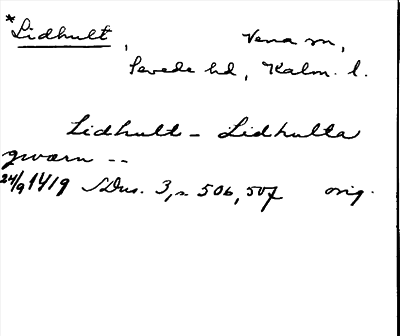 *Lidhult, Vena sn,
Sevede hd, Kalm. l.
Lidhult – Lidhulta
qwærn --
24/9 1419 SDns. 3, s 506, 507 orig.